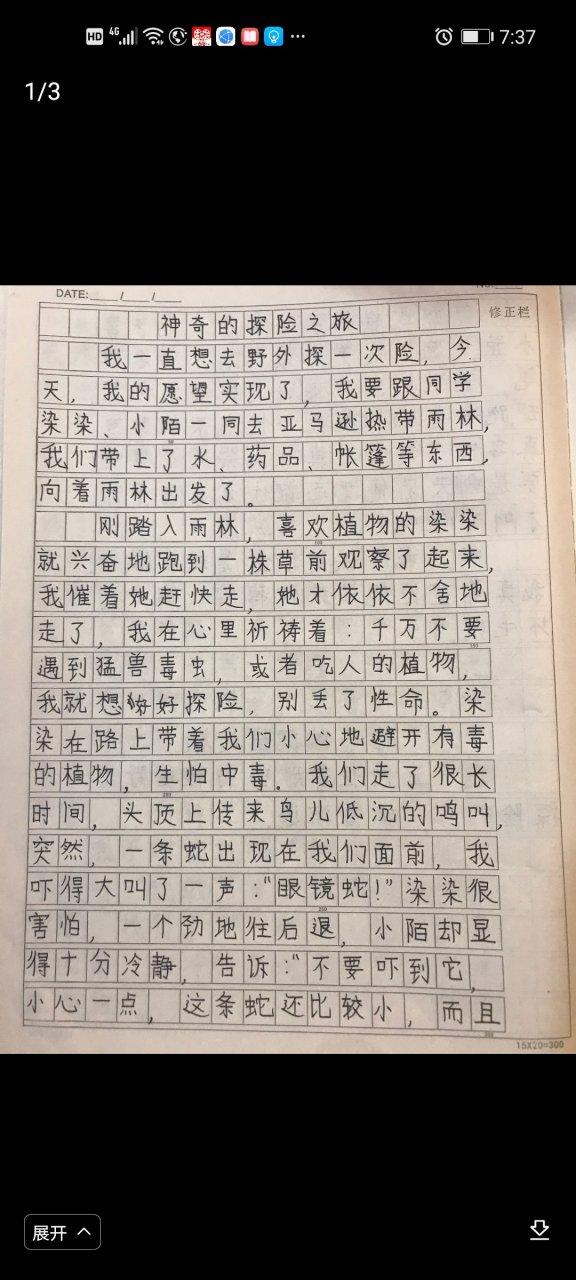 HD 4G 7:37
1/3
DATE:____/____/____
修正栏
神奇的探险之旅
我一直想去野外探一次险，今
天，我的愿望实现了，我要跟同学
染染、小陌一同去亚马逊热带雨林，
我们带上了水、药品、帐篷等东西，
向着雨林出发了。
刚踏入雨林，喜欢植物的染染
就兴奋地跑到一株草前观察了起来，
我催着她赶快走，她才依依不舍地
走了，我在心里祈祷着：千万不要
遇到猛兽毒虫，或者吃人的植物，
我就想好好探险，别丢了性命。染
染在路上带着我们小心地避开有毒
的植物，生怕中毒。我们走了很长
时间，头顶上传来鸟儿低沉的鸣叫，
突然，一条蛇出现在我们面前，我
吓得大叫了一声：“眼镜蛇！”染染很
害怕，一个劲地往后退，小陌却显
得十分冷静，告诉：“不要吓到它，
小心一点，这条蛇还比较小，而且
15X20=300
展开